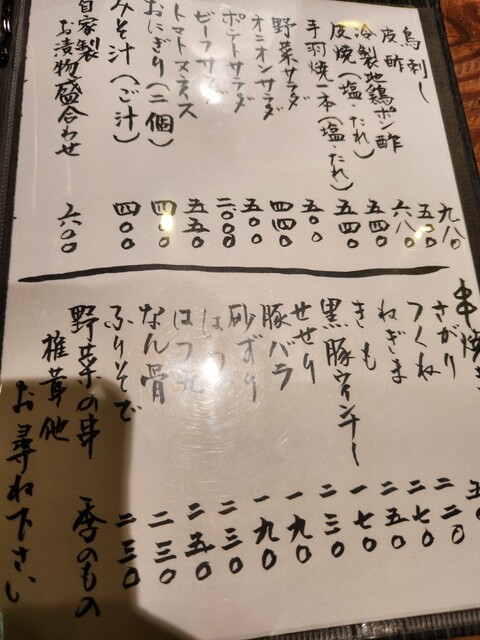 鳥刺し 九八〇
皮酢 五〇〇
冷製地鶏ポン酢 六八〇
皮焼(塩・たれ) 五四〇
手羽焼一本(塩・たれ) 五四〇
野菜サラダ 五〇〇
オニオンサラダ 四四〇
ポテトサラダ 五〇〇
ビーフサラダ 二〇〇〇
トマトスライス 五五〇
おにぎり(二個) 四〇〇
みそ汁(ご汁) 四〇〇
自家製
お漬物盛合わせ 六〇〇
串焼き
さがり
つくね 二二〇
ねぎま 二七〇
きも 二五〇
黒豚ウインナー 一七〇
せせり 二三〇
豚バラ 一九〇
砂ずり 一九〇
はつ 二三〇
はつ元 二五〇
なん骨 二三〇
ふりそで 二三〇
野菜の串 季のもの
椎茸他
お尋ね下さい